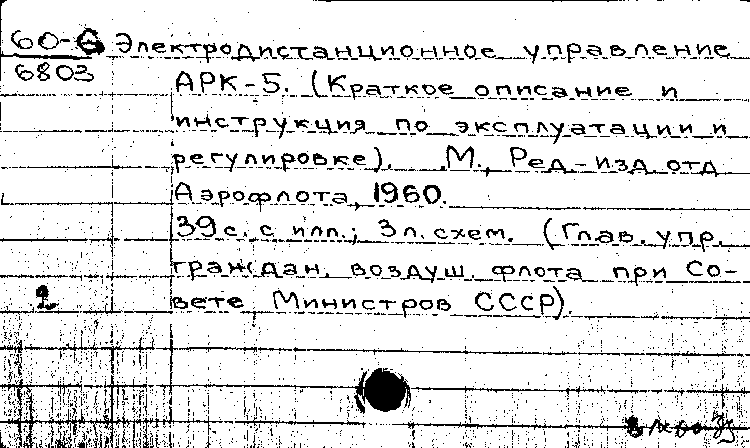 60-6 Электродистанционное управление
6803
АРК-5. (Краткое описание и
инструкция по эксплуатации и
регулировке). М., Ред.-изд. отд
Аэрофлота, 1960.
39 с. с илл.; 3 л. схем. (Глав. упр.
граждан. воздуш. флота при Со-
2 вете Министров СССР).